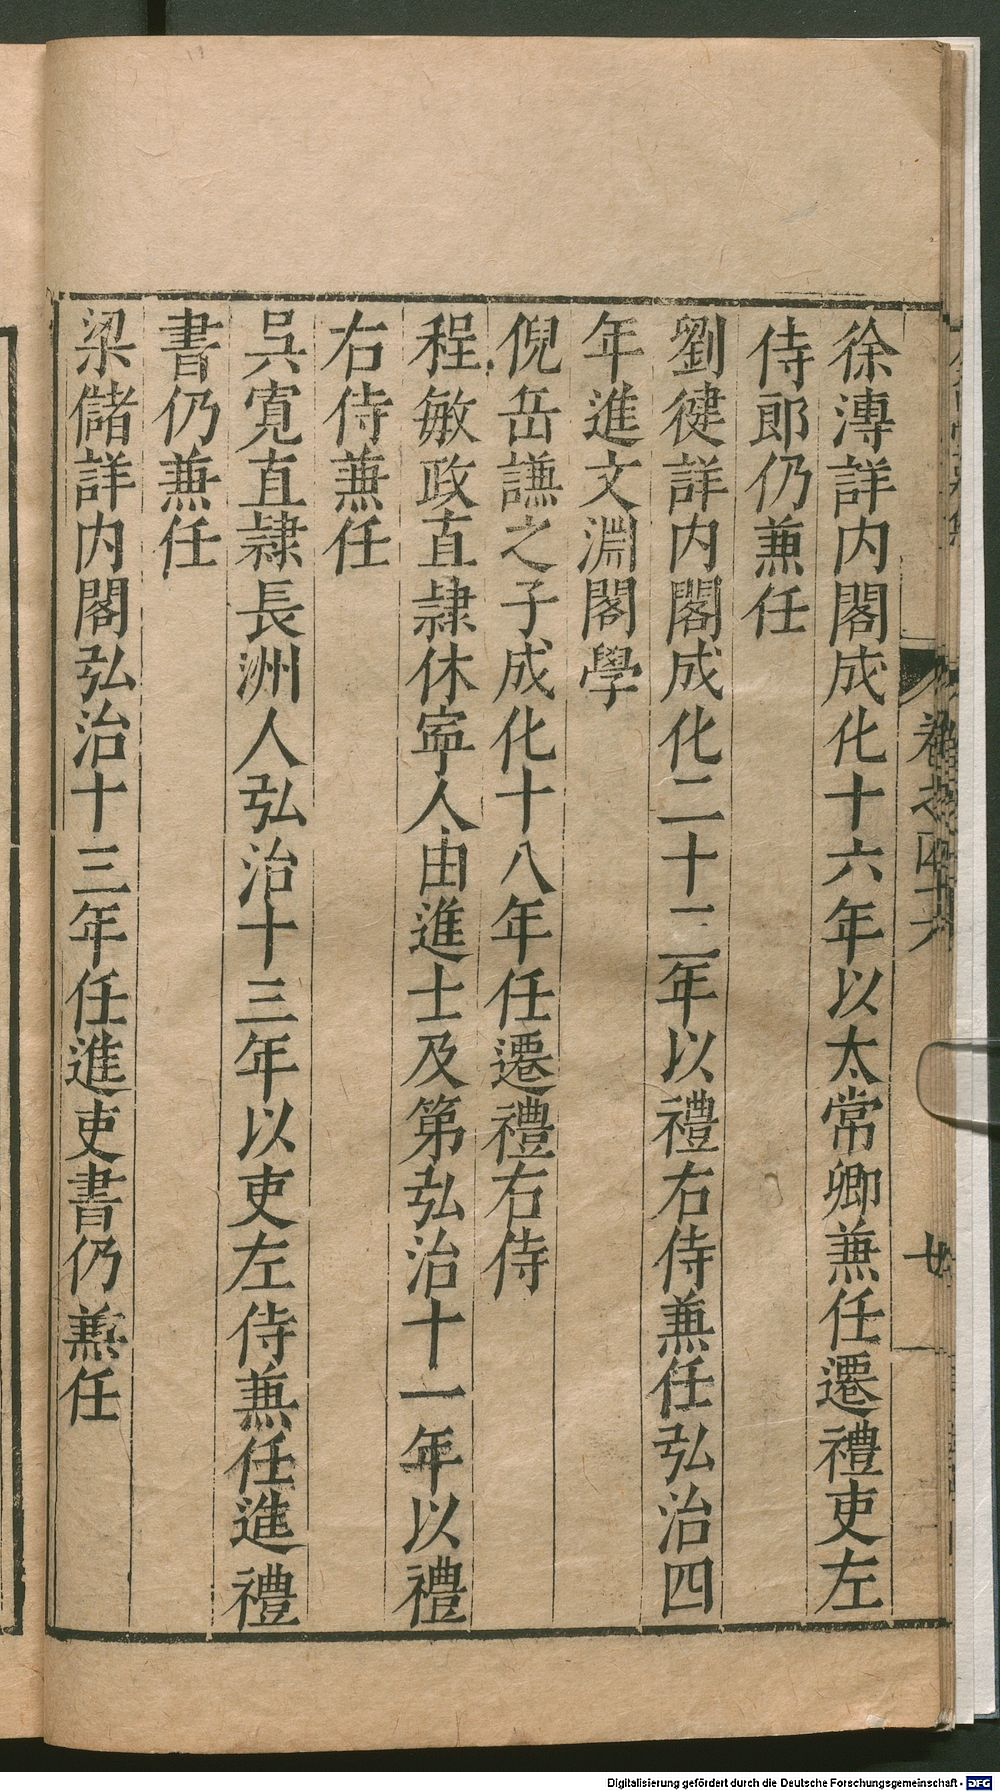 徐溥詳内閣成化十六年以太常卿兼任遷禮吏左
侍郎仍兼任
劉健詳内閣成化二十二年以禮右侍兼任弘治四
年進文淵閣學
倪岳謙之子成化十八年任遷禮右侍
程敏政直隸休寧人由進士及第弘治十一年以禮
右侍兼任
吳寛直隸長洲人弘治十三年以吏左侍兼任進禮
書仍兼任
梁儲詳内閣弘治十三年任進吏書仍兼任
卷之四十六
廿
Digitalisierung gefördert durch die Deutsche Forschungsgemeinschaft - DFG